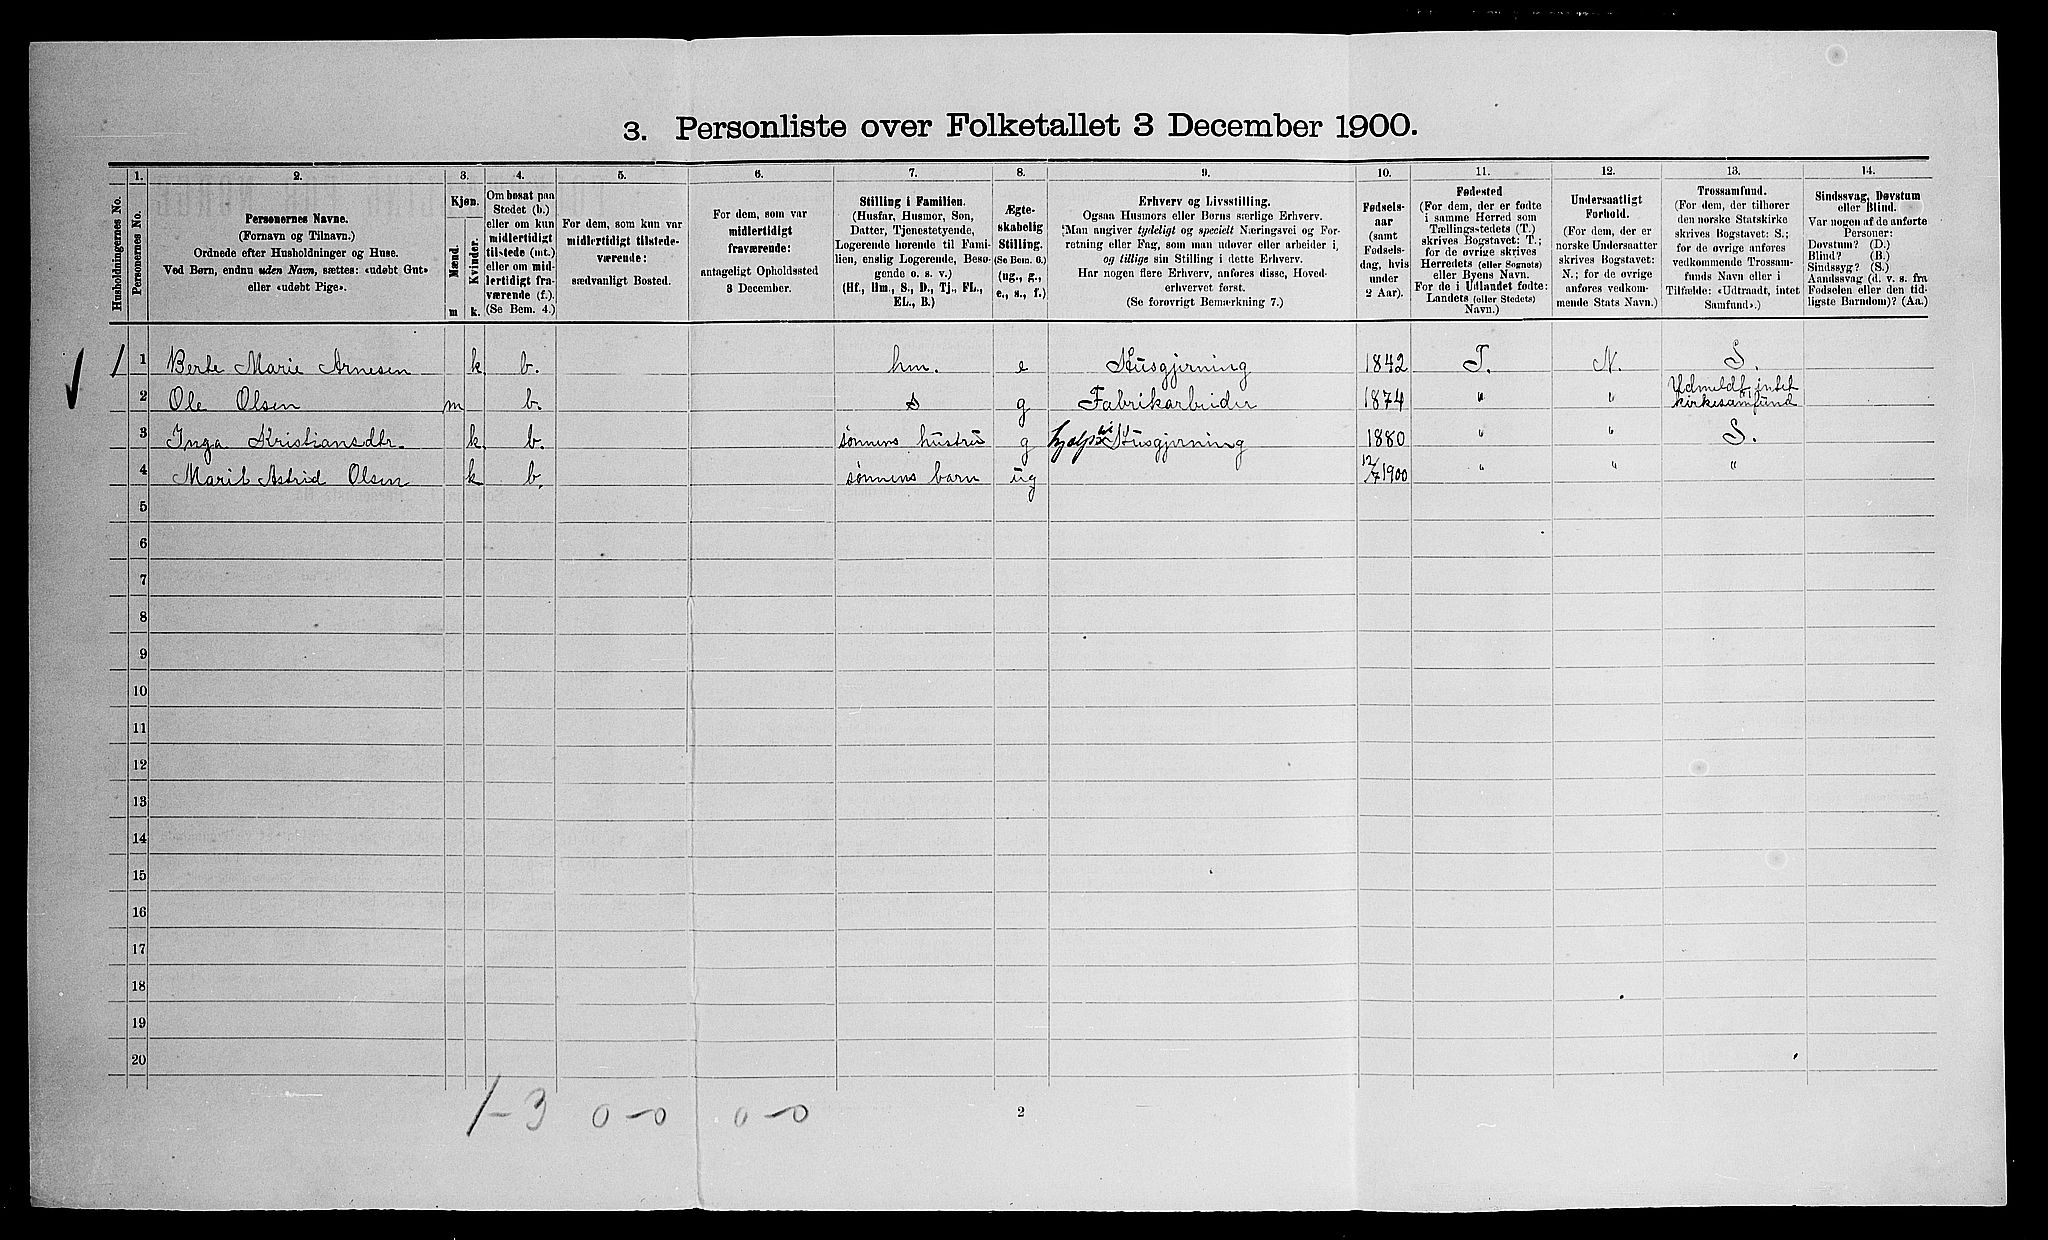 3. Personliste over Folketallet 3 December 1900.
Husholdningernes No.
1.
Personernes No.
2.
Personernes Navne.
(Fornavn og Tilnavn.)
Ordnede efter Husholdninger og Huse.
Ved Børn, endnu uden Navn, sættes: «udøbt Gut»
eller «udøbt Pige».
3.
Kjøn.
Mænd.
Kvinder.
m
k.
4.
Om bosat paa
Stedet (b.)
eller om kun
midlertidigt
tilstede (mt.)
eller om mid-
lertidigt fra-
værende (f.).
(Se Bem. 4.)
5.
For dem, som kun var
midlertidigt tilstede-
værende:
sædvanligt Bosted.
6.
For dem, som var
midlertidigt
fraværende:
antageligt Opholdssted
3 December.
7.
Stilling i Familien.
(Husfar, Husmor, Søn,
Datter, Tjenestetyende,
Logerende hørende til Fami-
lien, enslig Logerende, Besø-
gende o. s. v.)
(Hf., Hm., S., D., Tj., FL.,
EL., B.)
8.
Ægte-
skabelig
Stilling.
(Se Bem. 6.)
(ug., g.,
e., s., f.)
9.
Erhverv og Livsstilling.
Ogsaa Husmors eller Børns særlige Erhverv.
Man angiver tydeligt og specielt Næringsvei og For-
retning eller Fag, som man udøver eller arbeider i,
og tillige sin Stilling i dette Erhverv.
Har nogen flere Erhverv, anføres disse, Hoved-
erhvervet først.
(Se forøvrigt Bemærkning 7.)
10.
Fødsels-
aar
(samt
Fødsels-
dag, hvis
under
2 Aar).
11.
Fødested
(For dem, der er fødte
i samme Herred som
Tællingsstedets (T.)
skrives Bogstavet: T.;
for de øvrige skrives
Herredets (eller Sognets)
eller Byens Navn.
For de i Udlandet fødte:
Landets (eller Stedets)
Navn.)
12.
Undersaatligt
Forhold.
(For dem, der er
norske Undersaatter
skrives Bogstavet:
N.; for de øvrige
anføres vedkom-
mende Stats Navn.)
13.
Trossamfund.
(For dem, der tilhører
den norske Statskirke
skrives Bogstavet: S.;
for de øvrige anføres
vedkommende Trossam-
funds Navn eller i
Tilfælde: «Udtraadt, intet
Samfund».)
14.
Sindssvag, Døvstum
eller Blind.
Var nogen af de anførte
Personer:
Døvstum? (D.)
Blind? (B.)
Sindssyg? (S.)
Aandssvag (d. v. s. fra
Fødselen eller den tid-
ligste Barndom)? (Aa.)
1 1 Berte Marie Arnesen k b. hm. e Husgjerning 1842 T. N. S.
2 Ole Olsen m b. s g Fabrikarbeider 1874 " " Udmeldt, intet
kirkesamfund
3 Inga Kristiansdtr. k b. sønnens hustru g hjelps til Husgjerning 1880 " " S.
4 Marit Astrid Olsen k b. sønnens barn ug 12/7 1900 " " "
5
6
7
8
9
10
11
12
13
14
15
16
17
18
19
20
1-3 0-0 0-0
2